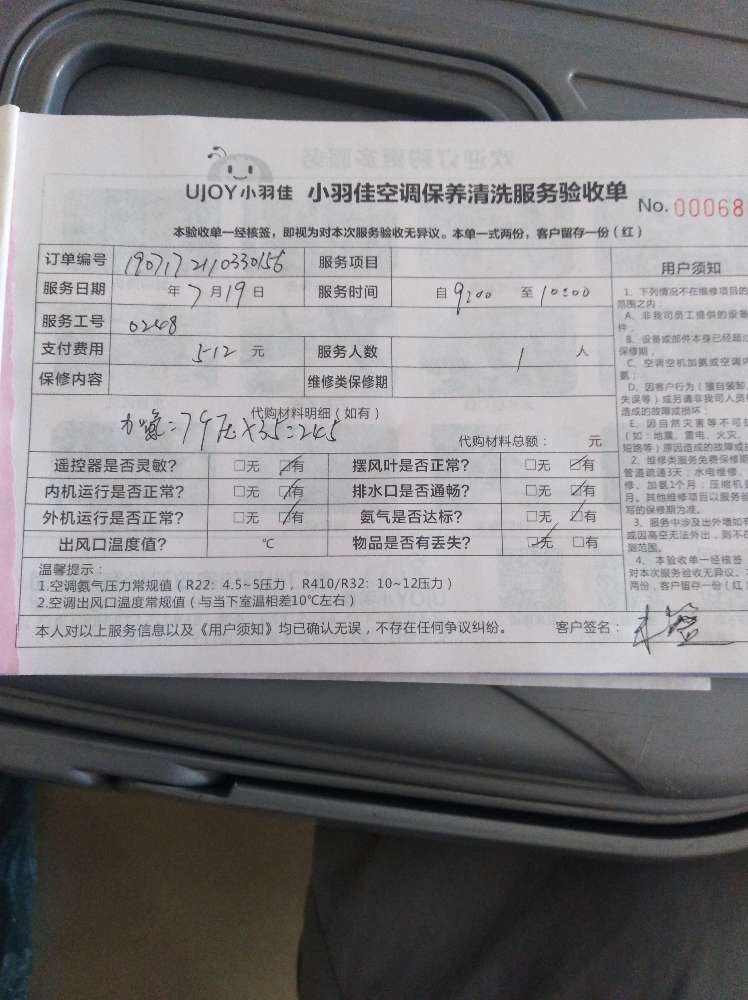 UJOY小羽佳 小羽佳空调保养清洗服务验收单 No. 00068
本验收单一经核签，即视为对本次服务验收无异议。本单一式两份，客户留存一份（红）
订单编号 190717 2110330156 服务项目
服务日期 年7月19日 服务时间 自9:00 至10:00
服务工号 0248
支付费用 512 元 服务人数 1 人
保修内容 维修类保修期
代购材料明细（如有）
=7 35=245
代购材料总额： 元
遥控器是否灵敏? □无 ☑有 摆风叶是否正常? □无 ☑有
内机运行是否正常? □无 ☑有 排水口是否通畅? □无 ☑有
外机运行是否正常? □无 ☑有 氨气是否达标? □无 ☑有
出风口温度值? ℃ 物品是否有丢失? ☑无 □有
温馨提示：
1.空调氨气压力常规值（R22：4.5~5压力，R410/R32：10~12压力）
2.空调出风口温度常规值（与当下室温相差10℃左右）
本人对以上服务信息以及《用户须知》均已确认无误，不存在任何争议纠纷。 客户签名：
用户须知
1、下列情况不在维修项目的
范围之内：
A、非我司员工提供的设备
件，
B、设备或部件本身已经超过
保修期，
C、空调空机加氨或空调内
氨；
D、因客户行为（擅自装卸
失误等）或另请非我司人员
造成的故障或损坏；
E、因自然灾害等不可
（如：地震、雷电、火灾、
短路等）原因造成的故障或
2、维修类服务免费保修期
管道疏通3天；水电维修、
修、加氨1个月；压缩机
月。其他维修项目以服务
写的保修期为准。
3、服务中涉及出外墙如
或因高空无法外出，则不在
测范围。
4、本验收单一经核签
对本次服务验收无异议。
两份，客户留存一份（红）